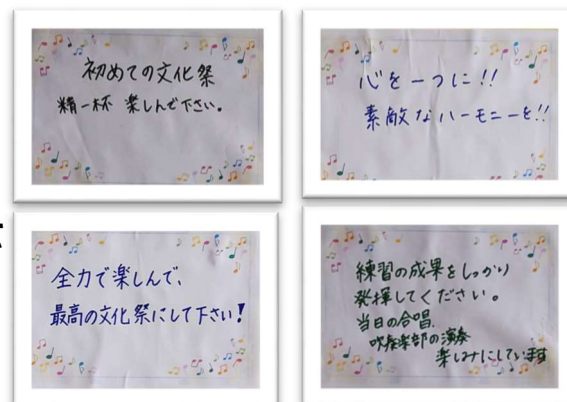 初めての文化祭
精一杯 楽しんで下さい。
心を一つに!!
素敵なハーモニーを!!
全力で楽しんで、
最高の文化祭にして下さい!
練習の成果をしっかり
発揮してください。
当日の合唱、
吹奏楽部の演奏
楽しみにしています